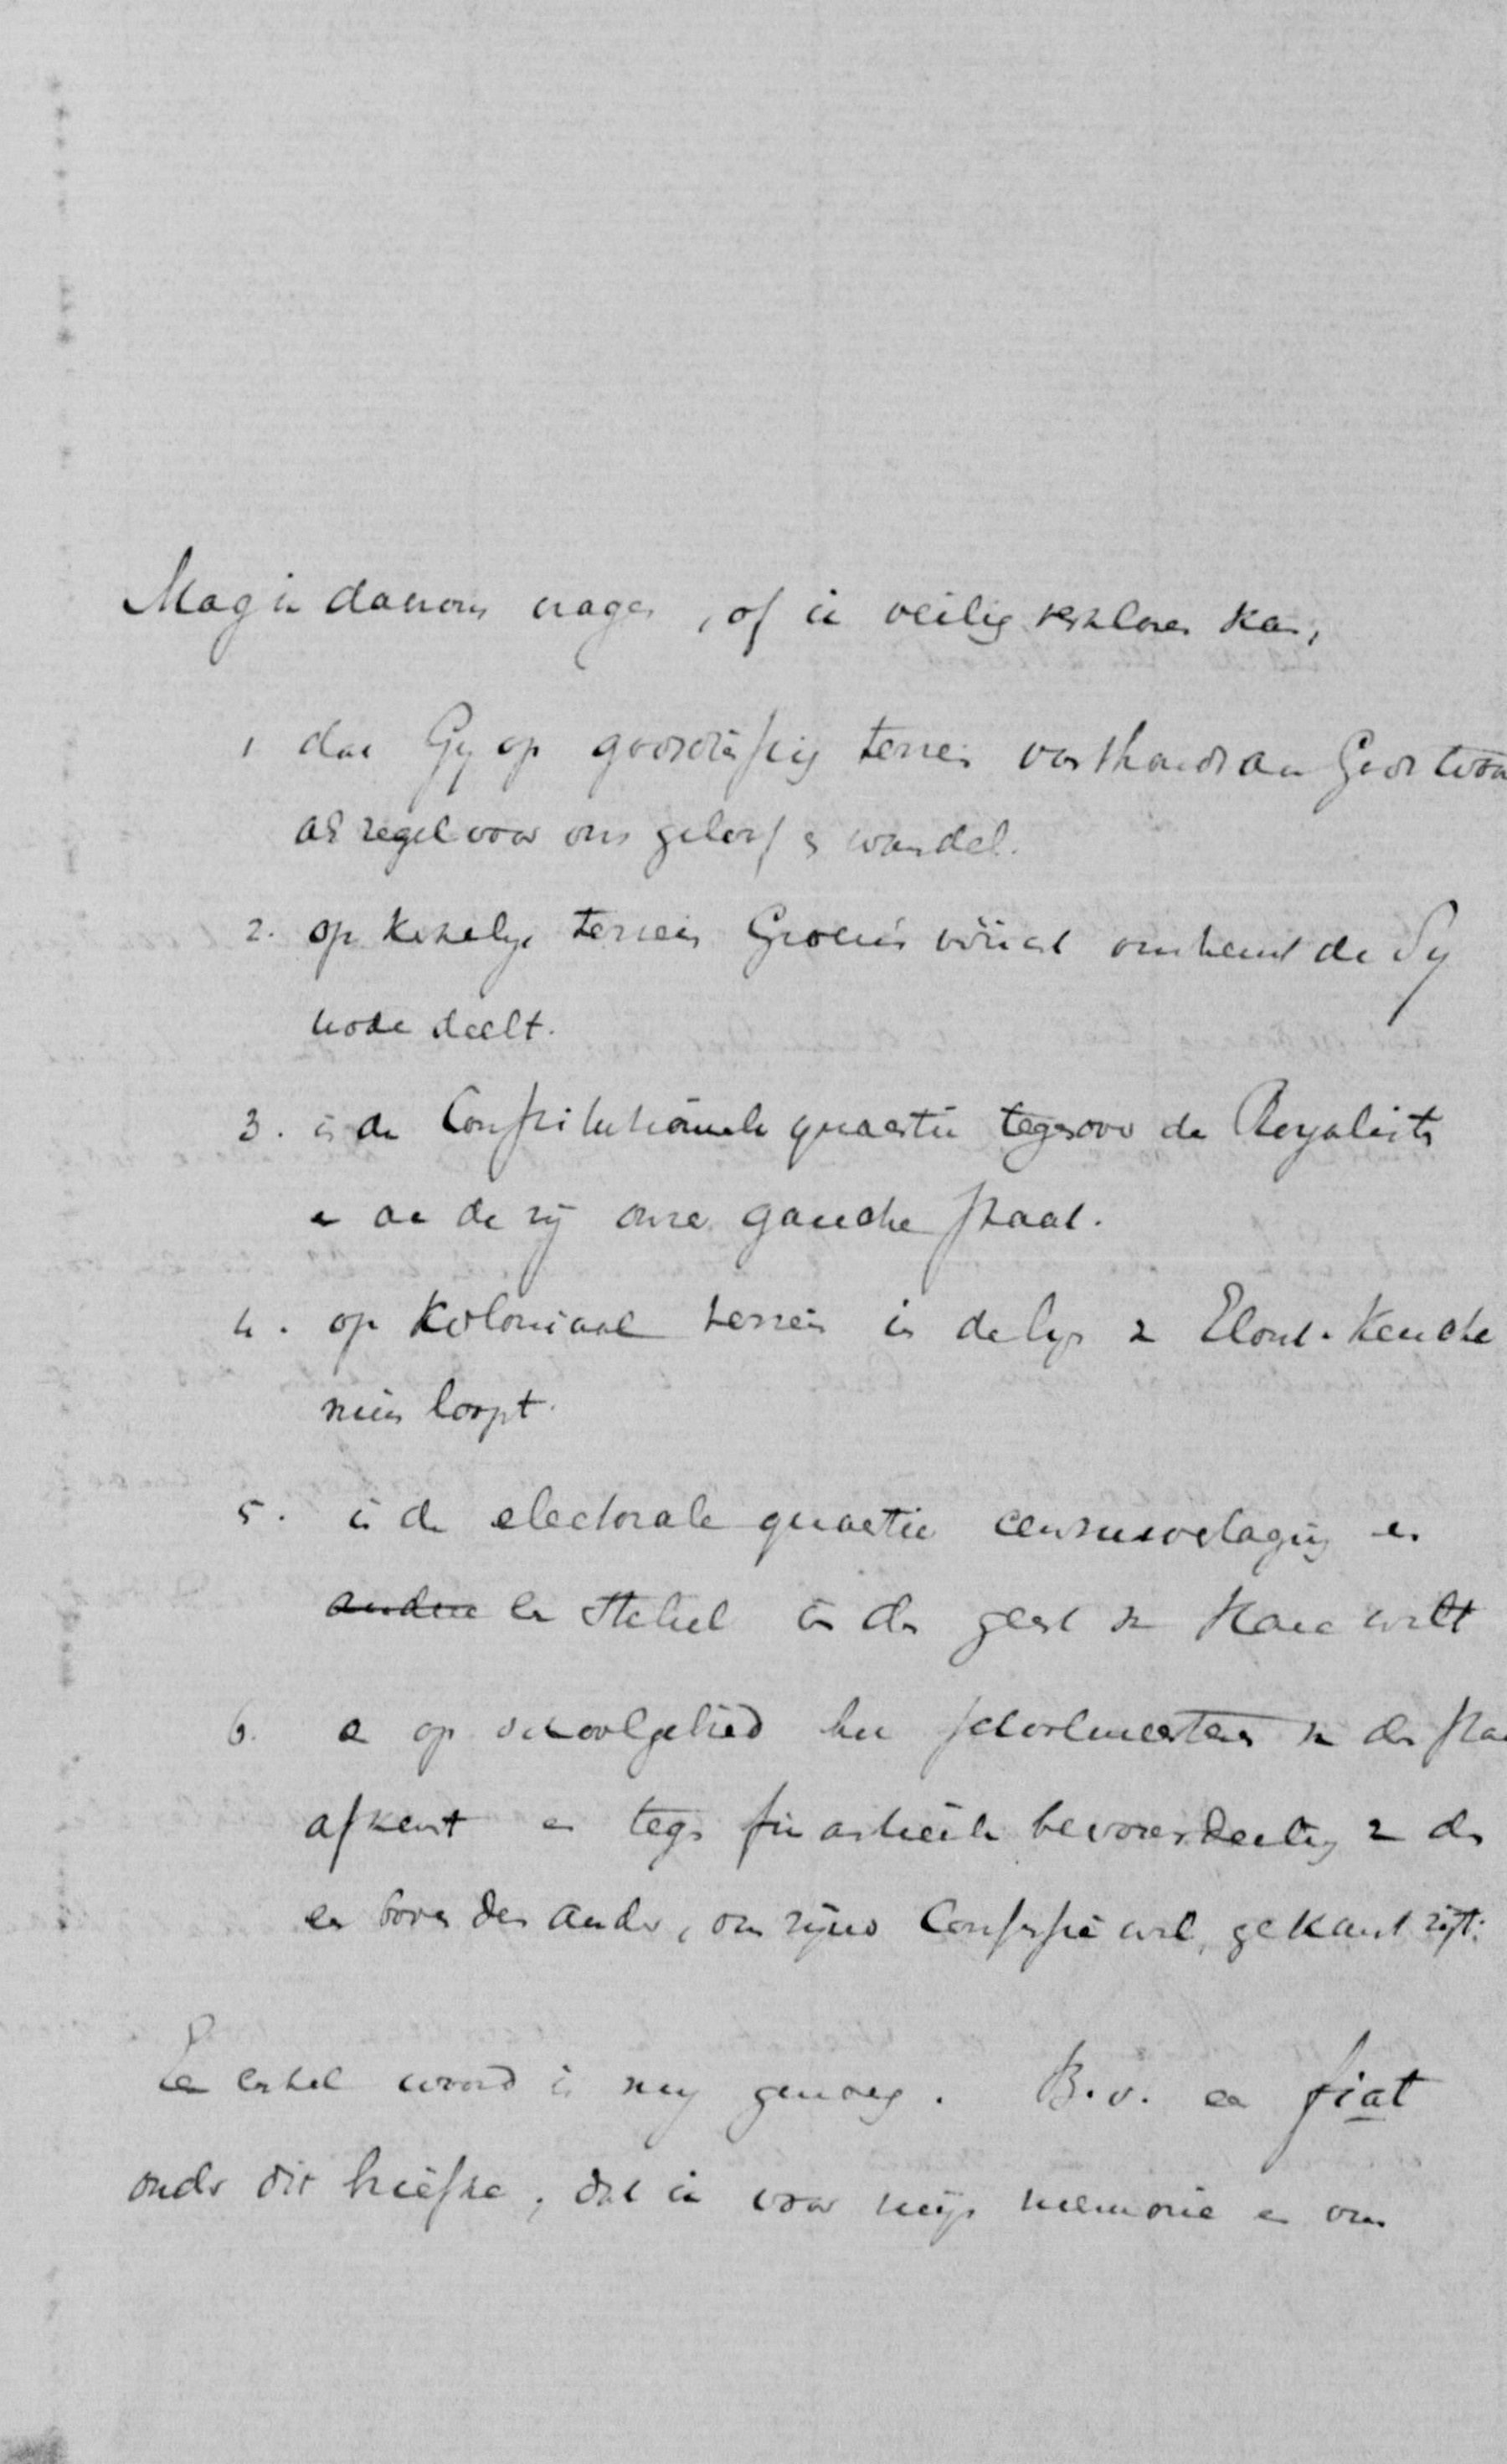 Mag ik daarom vragen, of ik veilig verklaren kan,
1 dat Gij op godsdienstig terrein vasthoudt aan Gods woord
als regel voor ons geloof & wandel.
2. op kerkelijk terrein Groen's omtrent de Sy
node deelt.
3. in de Constitutioneele quaestie tegenover de Royalisten
en aan de zij onzer gauche staat.
4. op Koloniaal terrein in de lijn van Elout. Keuche
nius loopt.
5. in de electorale quaestie censusverlaging en
andere een stelsel in den geest van Hare wilt
6. en op schoolgebied het schoolmeesteren van den staat
afkeurt en tegen financieele bevoordeeling van den
een boven den ander, om zijns Confessie wil, gekant zijt.
Een enkel woord is mij genoeg. B.v. een fiat
onder dit briefke, dat ik voor mijn memorie en om